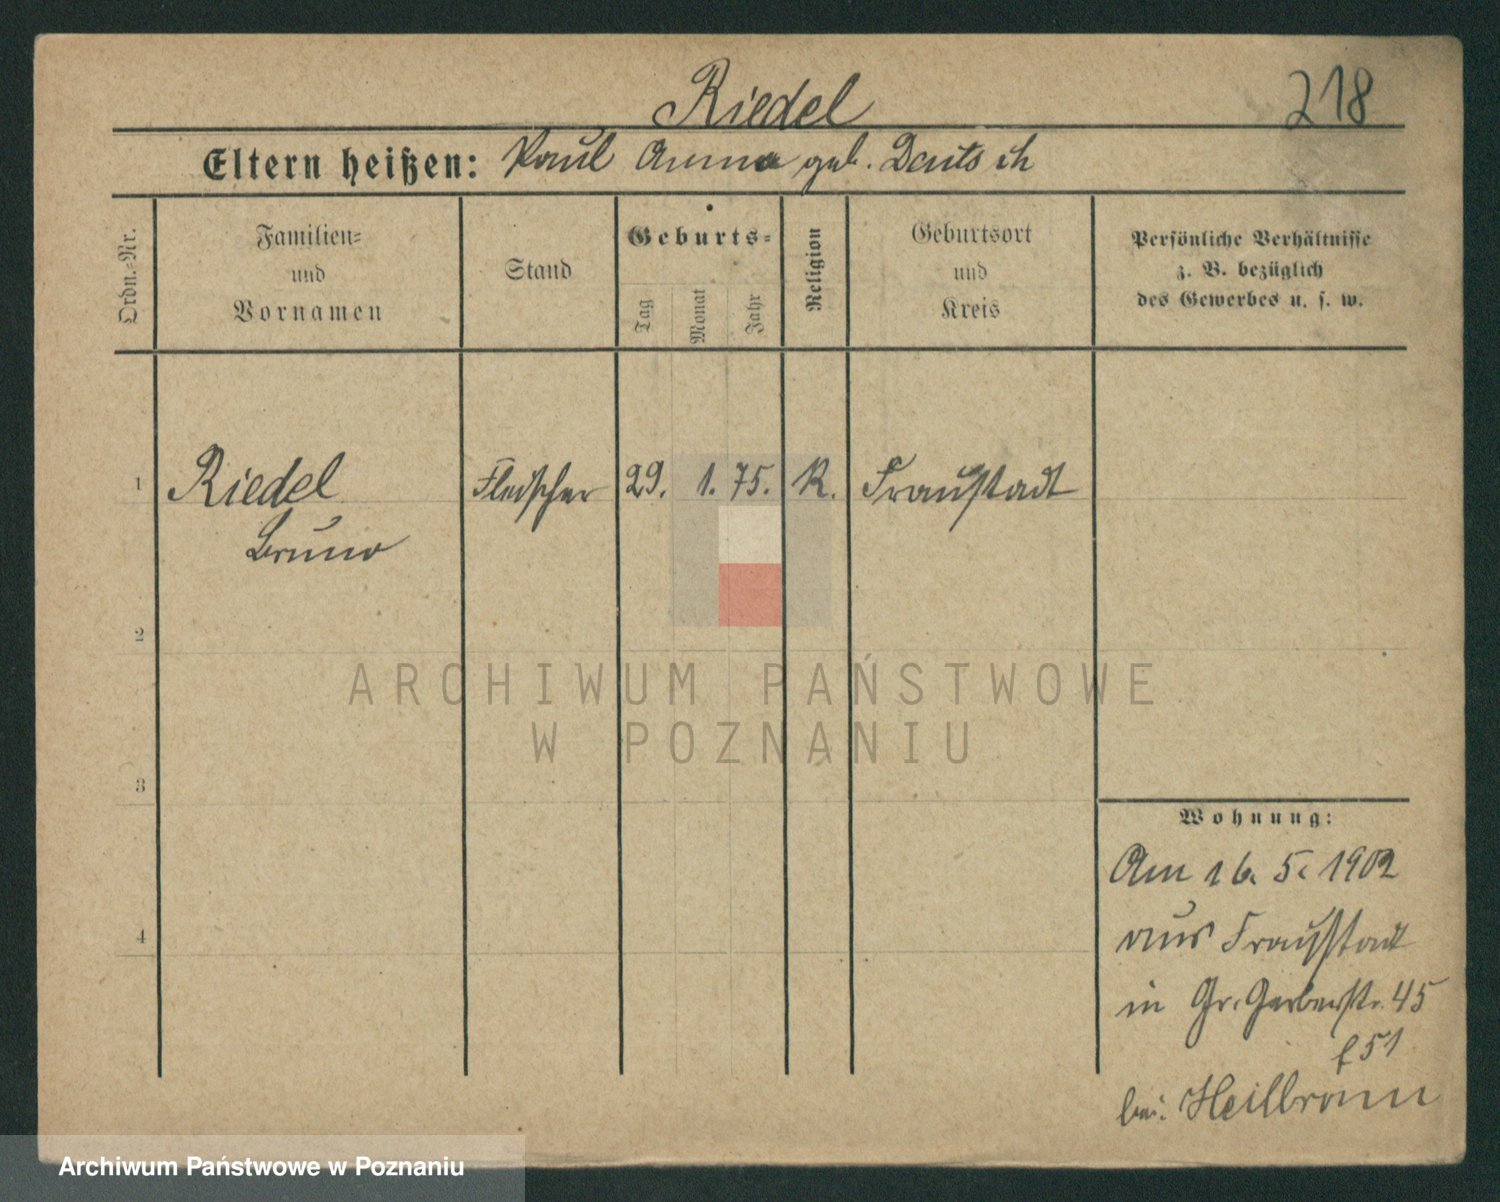 Riedel
218
Eltern heißen: Paul Anna geb. Deutsch
Ordn.-Nr.
Familien-
und
Vornamen
Stand
Geburts-
Tag
Monat
Jahr
Religion
Geburtsort
und
Kreis
Persönliche Verhältnisse
z. B. bezüglich
des Gewerbes u. s. w.
1 Riedel Fleischer 29. 1. 75. K. Fraustadt
Bruno
2
3
4
ARCHIWUM PAŃSTWOWE
W POZNANIU
Wohnung:
Am 16. 5. 1902
aus Fraustadt
in Gr. Gerberstr. 45
f 51
bei: Heilbronn
Archiwum Państwowe w Poznaniu